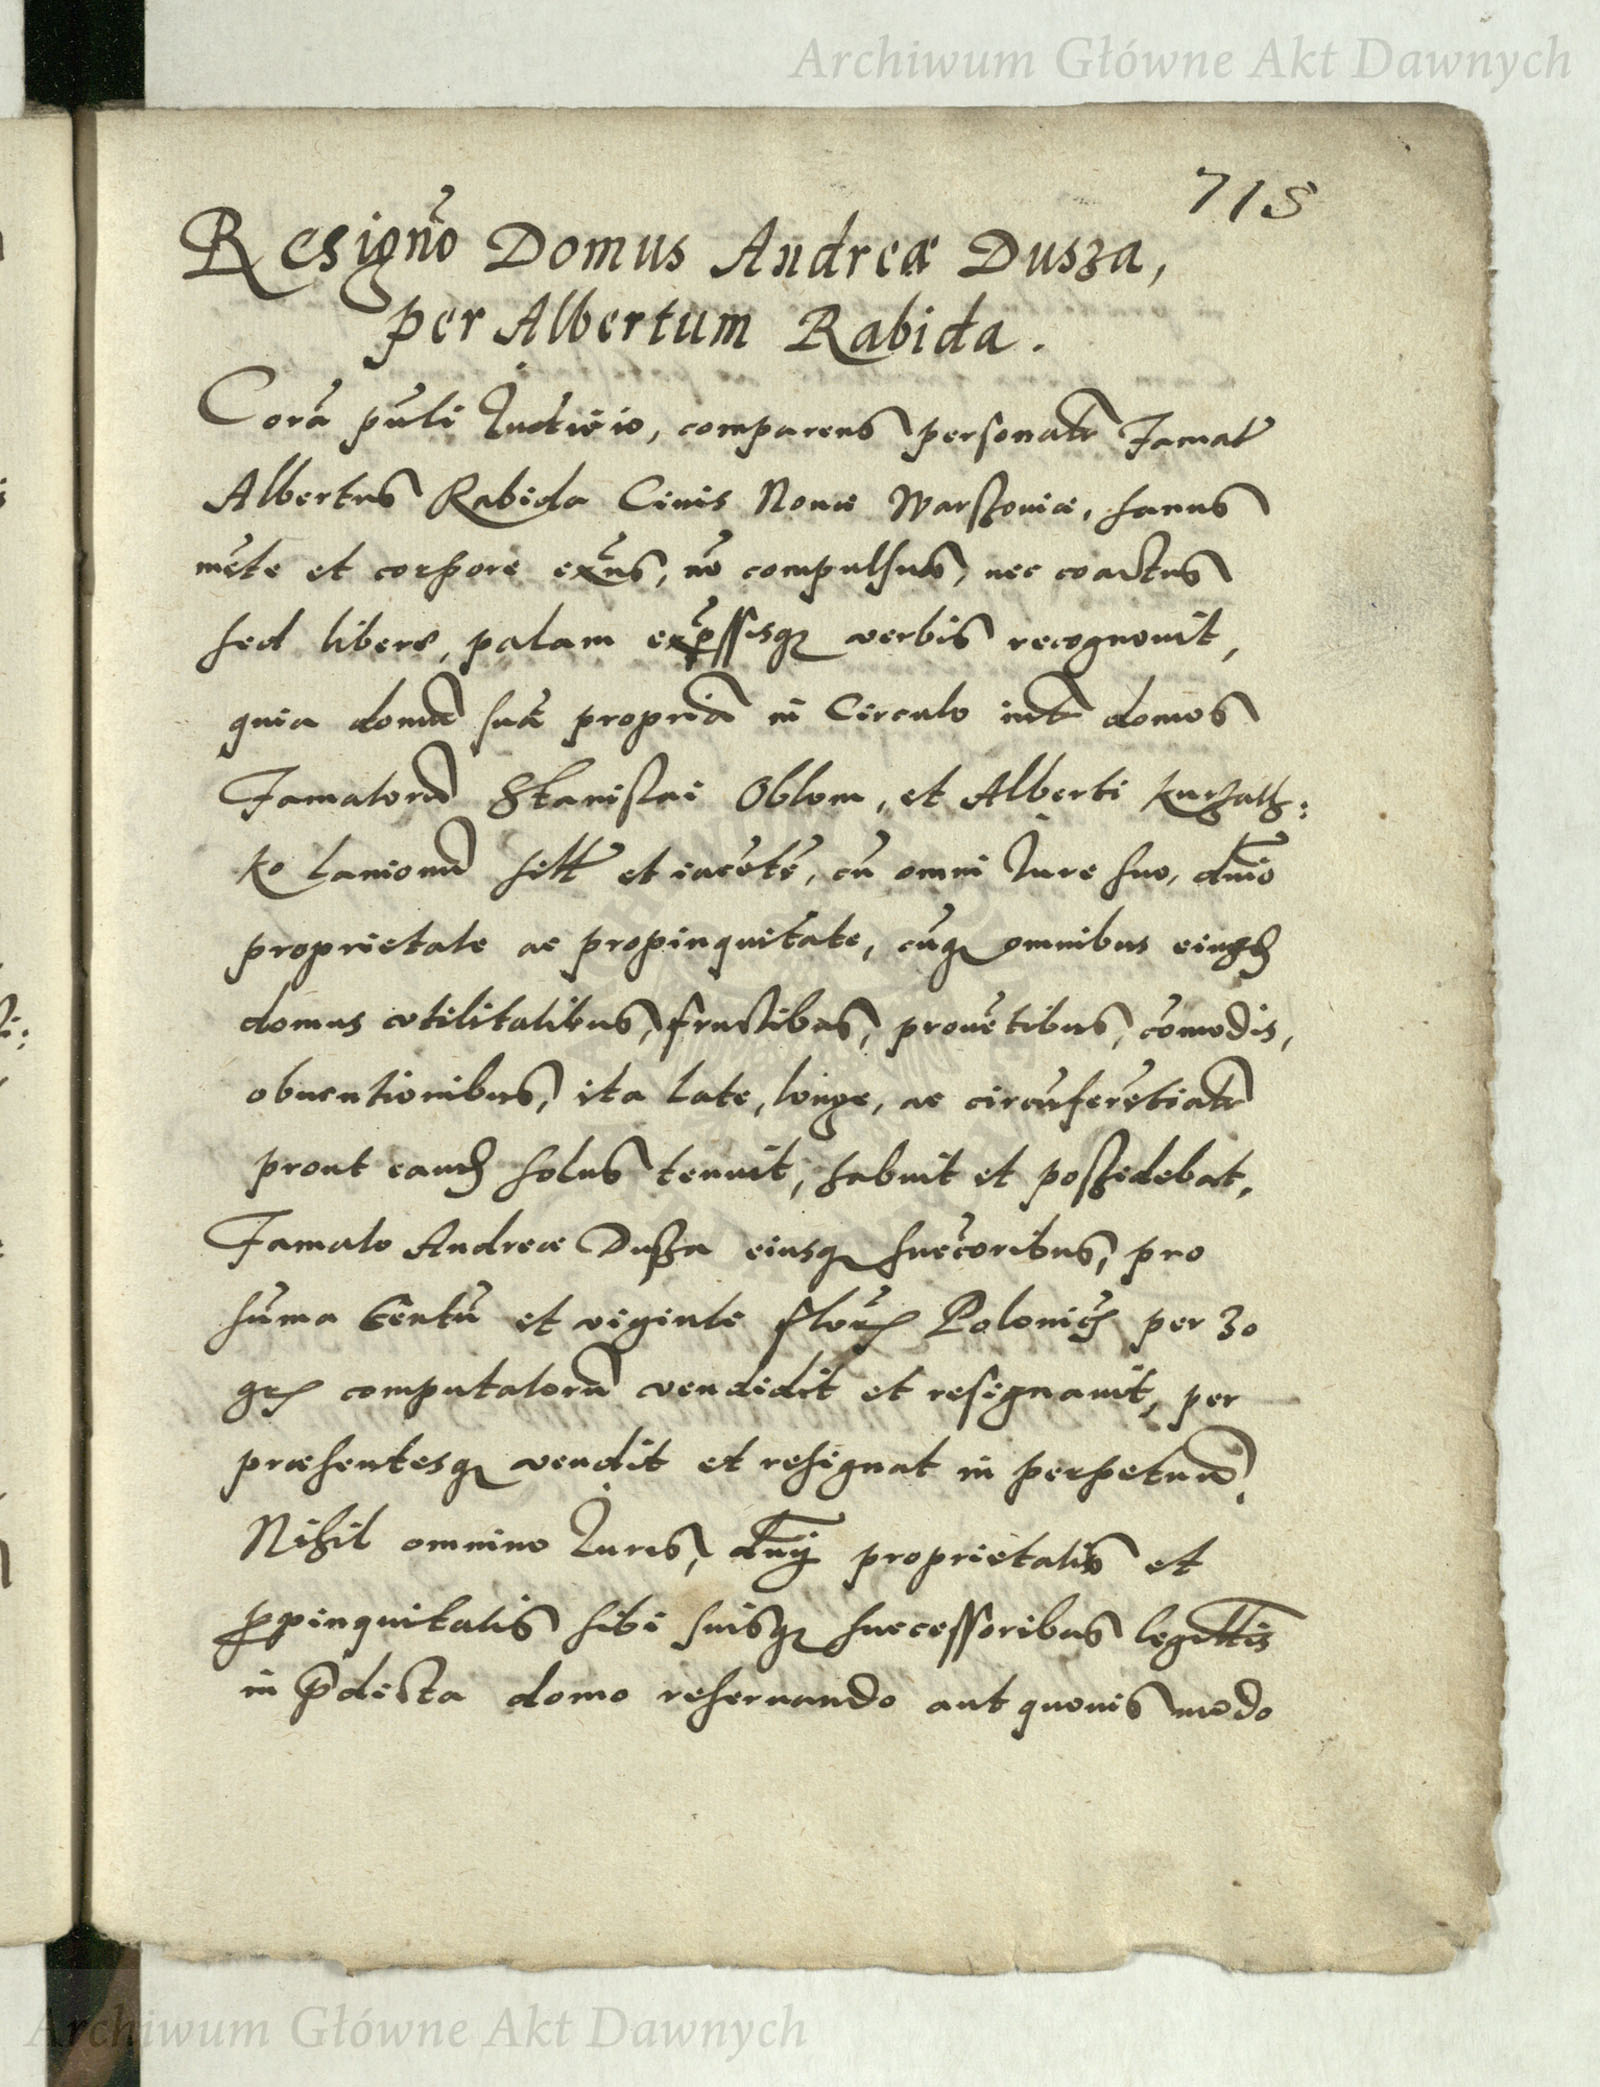 Archiwum Główne Akt Dawnych
718
Resigno͂ Domus Andreæ Dusza,
per Albertum Rabida.
Corā pūli Iudicio, comparens personatr Famat9
Albertus Rabida Ciuis Nouæ Warszouiæ, sanus
mēte et corpore exn̄s, nō compulsus, nec coactus
sed libere, palam exp̄ssisq3 verbis recognouit,
quia domū suā propriā in Circulo int domos
Famatorū Stanislai Oblom, et Alberti Kurzath:
ko Lanionū sitā et iacētē, cū omni Iure suo, dn̄io
proprietate ac propinquitate, cūq3 omnibus eiusd
domus vtilitatibus, fructibus, prouētibus, cōmodis,
obuentionibus, ita late, longe, ac circūferētiatr
prout eand solus tenuit, habuit et poszidebat,
Famato Andreæ Dusza eiusq3 succ̄oribus, pro
sūma Centū et viginti flor̄ Polonic̄ per 30
gr computatorū vendidit et resignauit, per
præsentesq3 vendit et resignat in perpetuū,
Nihil omnino Iuris, dn̄ij proprietatis et
p̱pinquitatis sibi suisq3 successoribus legittis̄
in p̄dicta domo reseruando aut quouis modo
Archiwum Główne Akt Dawnych